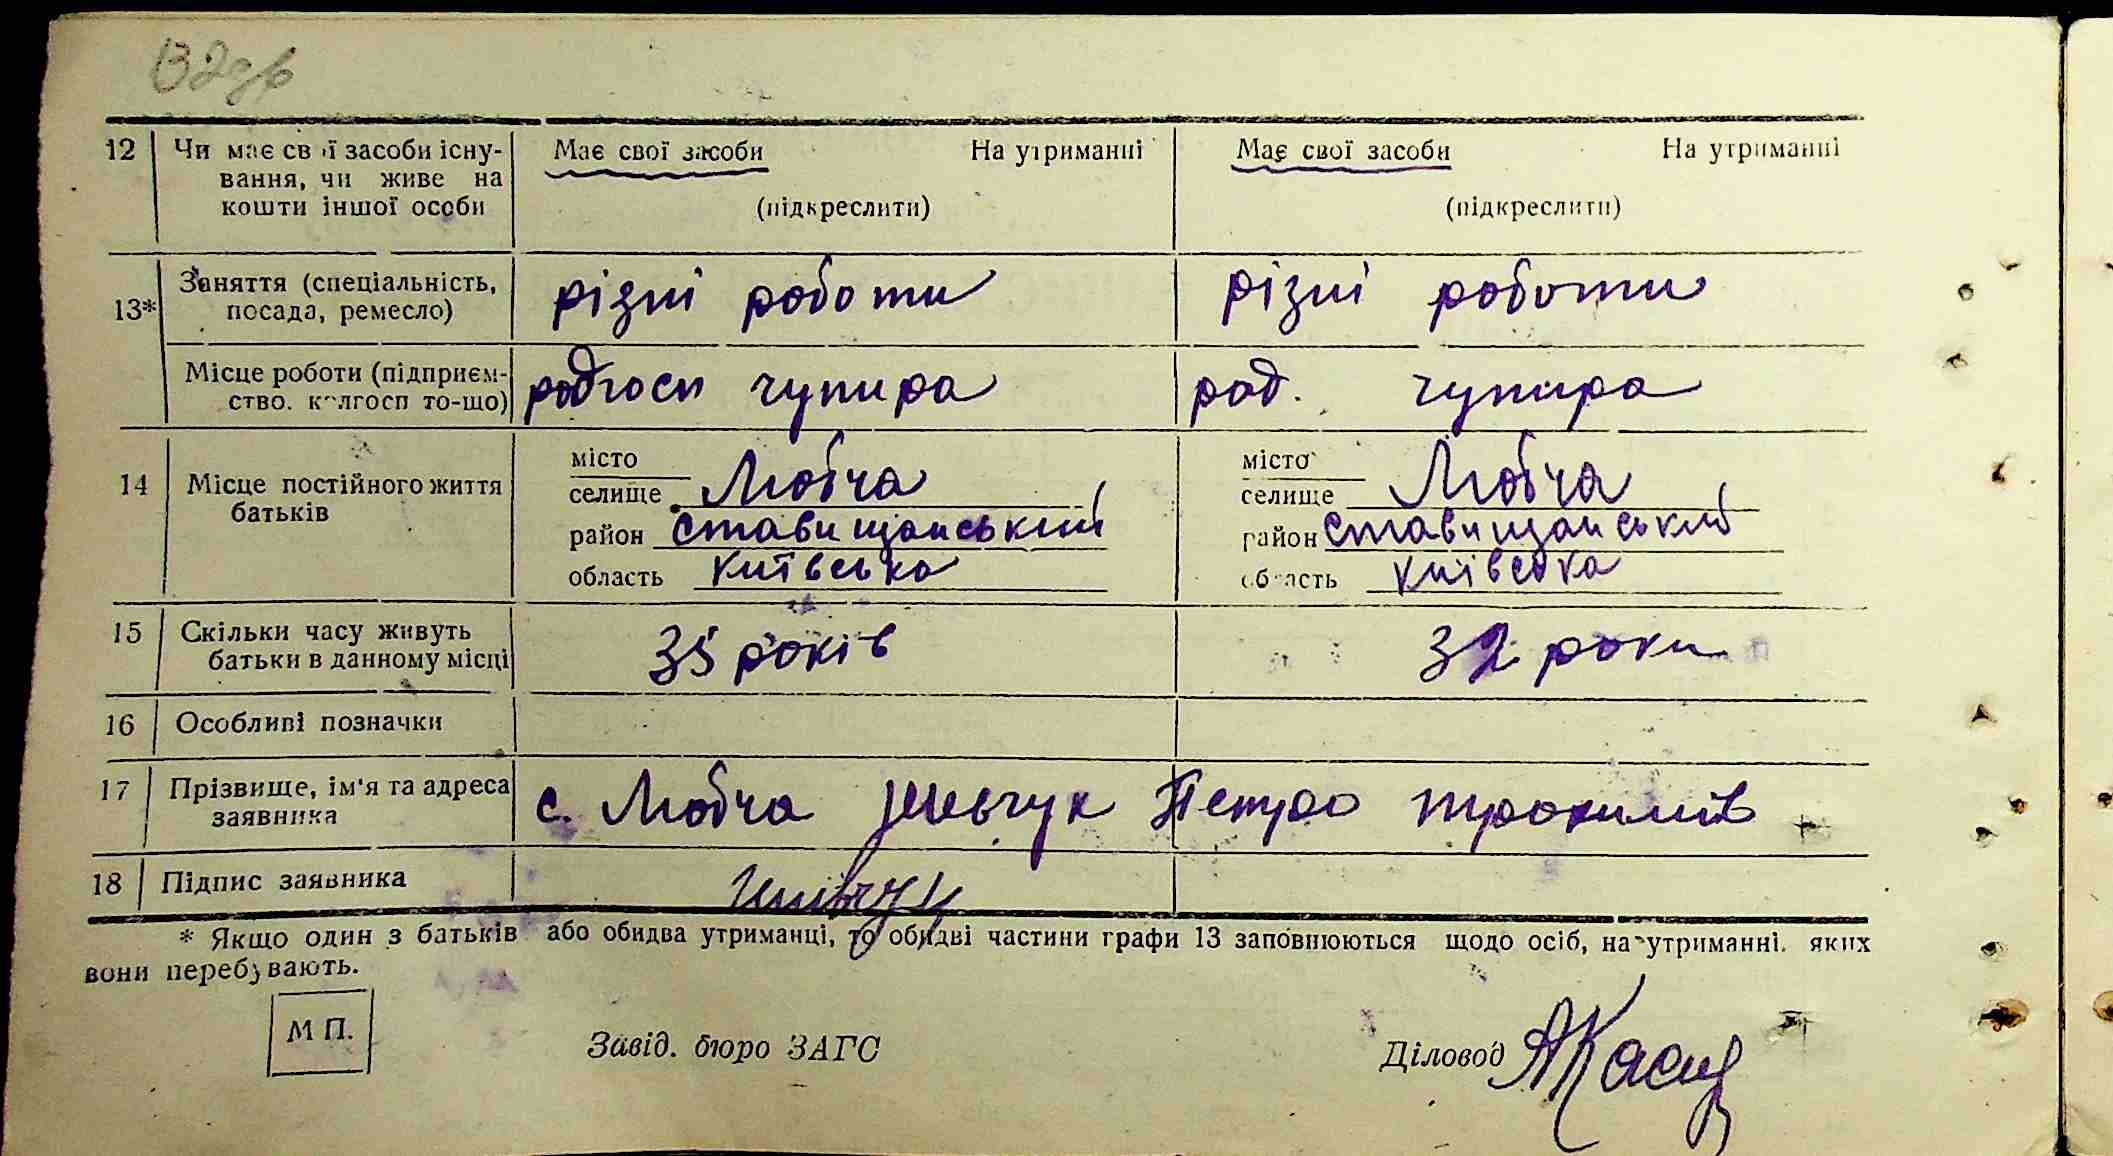 12 Чи має свої засоби існу-
вання, чи живе на
кошти іншої особи
Має свої засоби На утриманні
(підкреслити)
Має свої засоби На утриманні
(підкреслити)
13* Заняття (спеціальність,
посада, ремесло)
різні роботи
різні роботи
Місце роботи (підприєм-
ство, колгосп то-що)
радгосп чупира
рад. чупира
14 Місце постійного життя
батьків
місто
селище Любча
район Ставищанський
область київська
місто
селище Любча
район Ставищанський
область київська
15 Скільки часу живуть
батьки в данному місці
35 років
32 роки
16 Особливі позначки
17 Прізвище, ім'я та адреса
заявника
с. Любча Шевчук Петро трохимів
18 Підпис заявника
* Якщо один з батьків або обидва утриманці, то обидві частини графи 13 заповнюються щодо осіб, на утриманні яких
вони перебувають.
М П.
Завід. бюро ЗАГС
Діловод